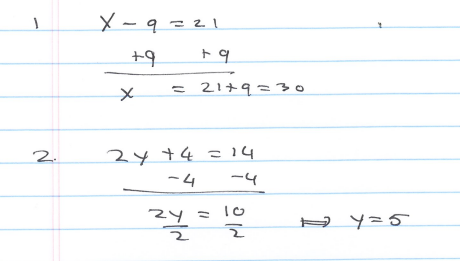 1 x - 9 = 21
+9 +9
x = 21+9 = 30
2. 2y + 4 = 14
-4 -4
2y/2 = 10/2 ⟹ y = 5